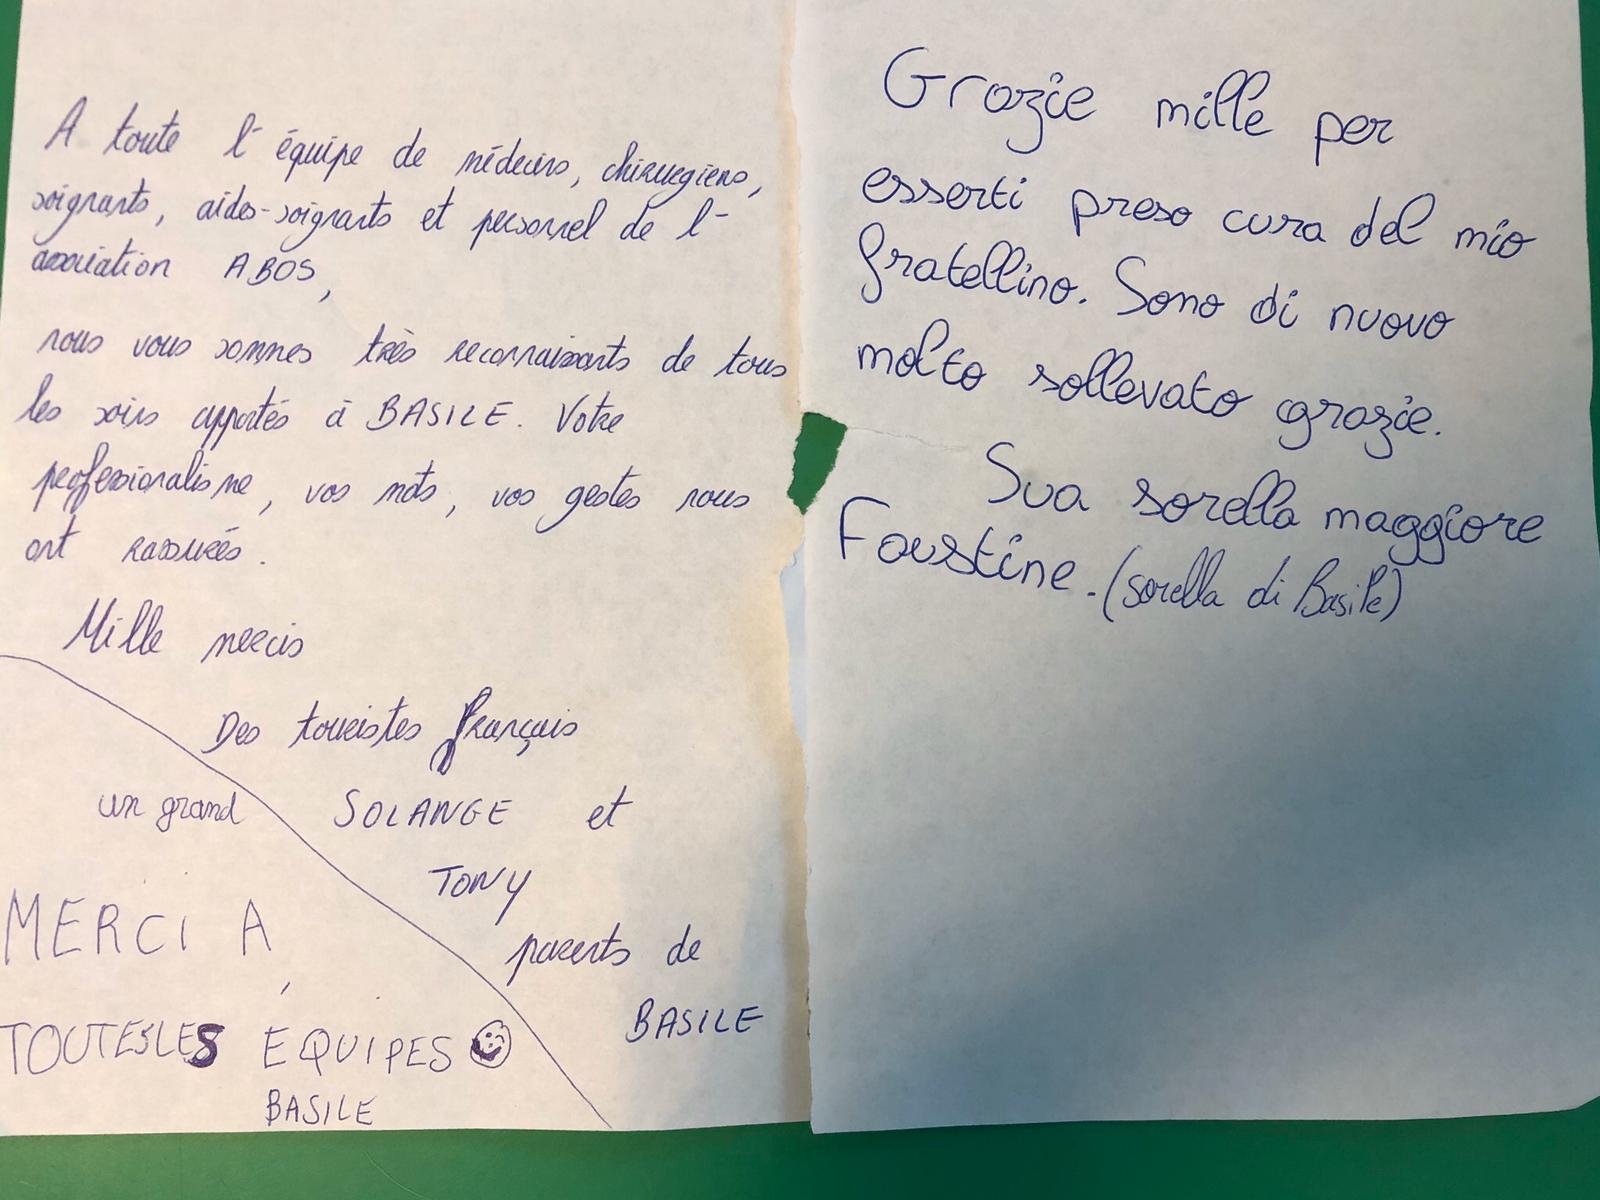 A toute l'équipe de médecins, chirurgiens,
soignants, aides-soignants et personnel de l'
association ABOS,
nous vous sommes très reconnaissants de tous
les soins apportés à BASILE. Votre
professionalisme, vos mots, vos gestes nous
ont rassurés.
Mille mercis
Des touristes français
SOLANGE et
TONY
parents de
BASILE
un grand
MERCI A
TOUTES LES ÉQUIPES
BASILE
Grazie mille per
esserti preso cura del mio
fratellino. Sono di nuovo
molto sollevato grazie.
Sua sorella maggiore
Faustine. (sorella di Basile)